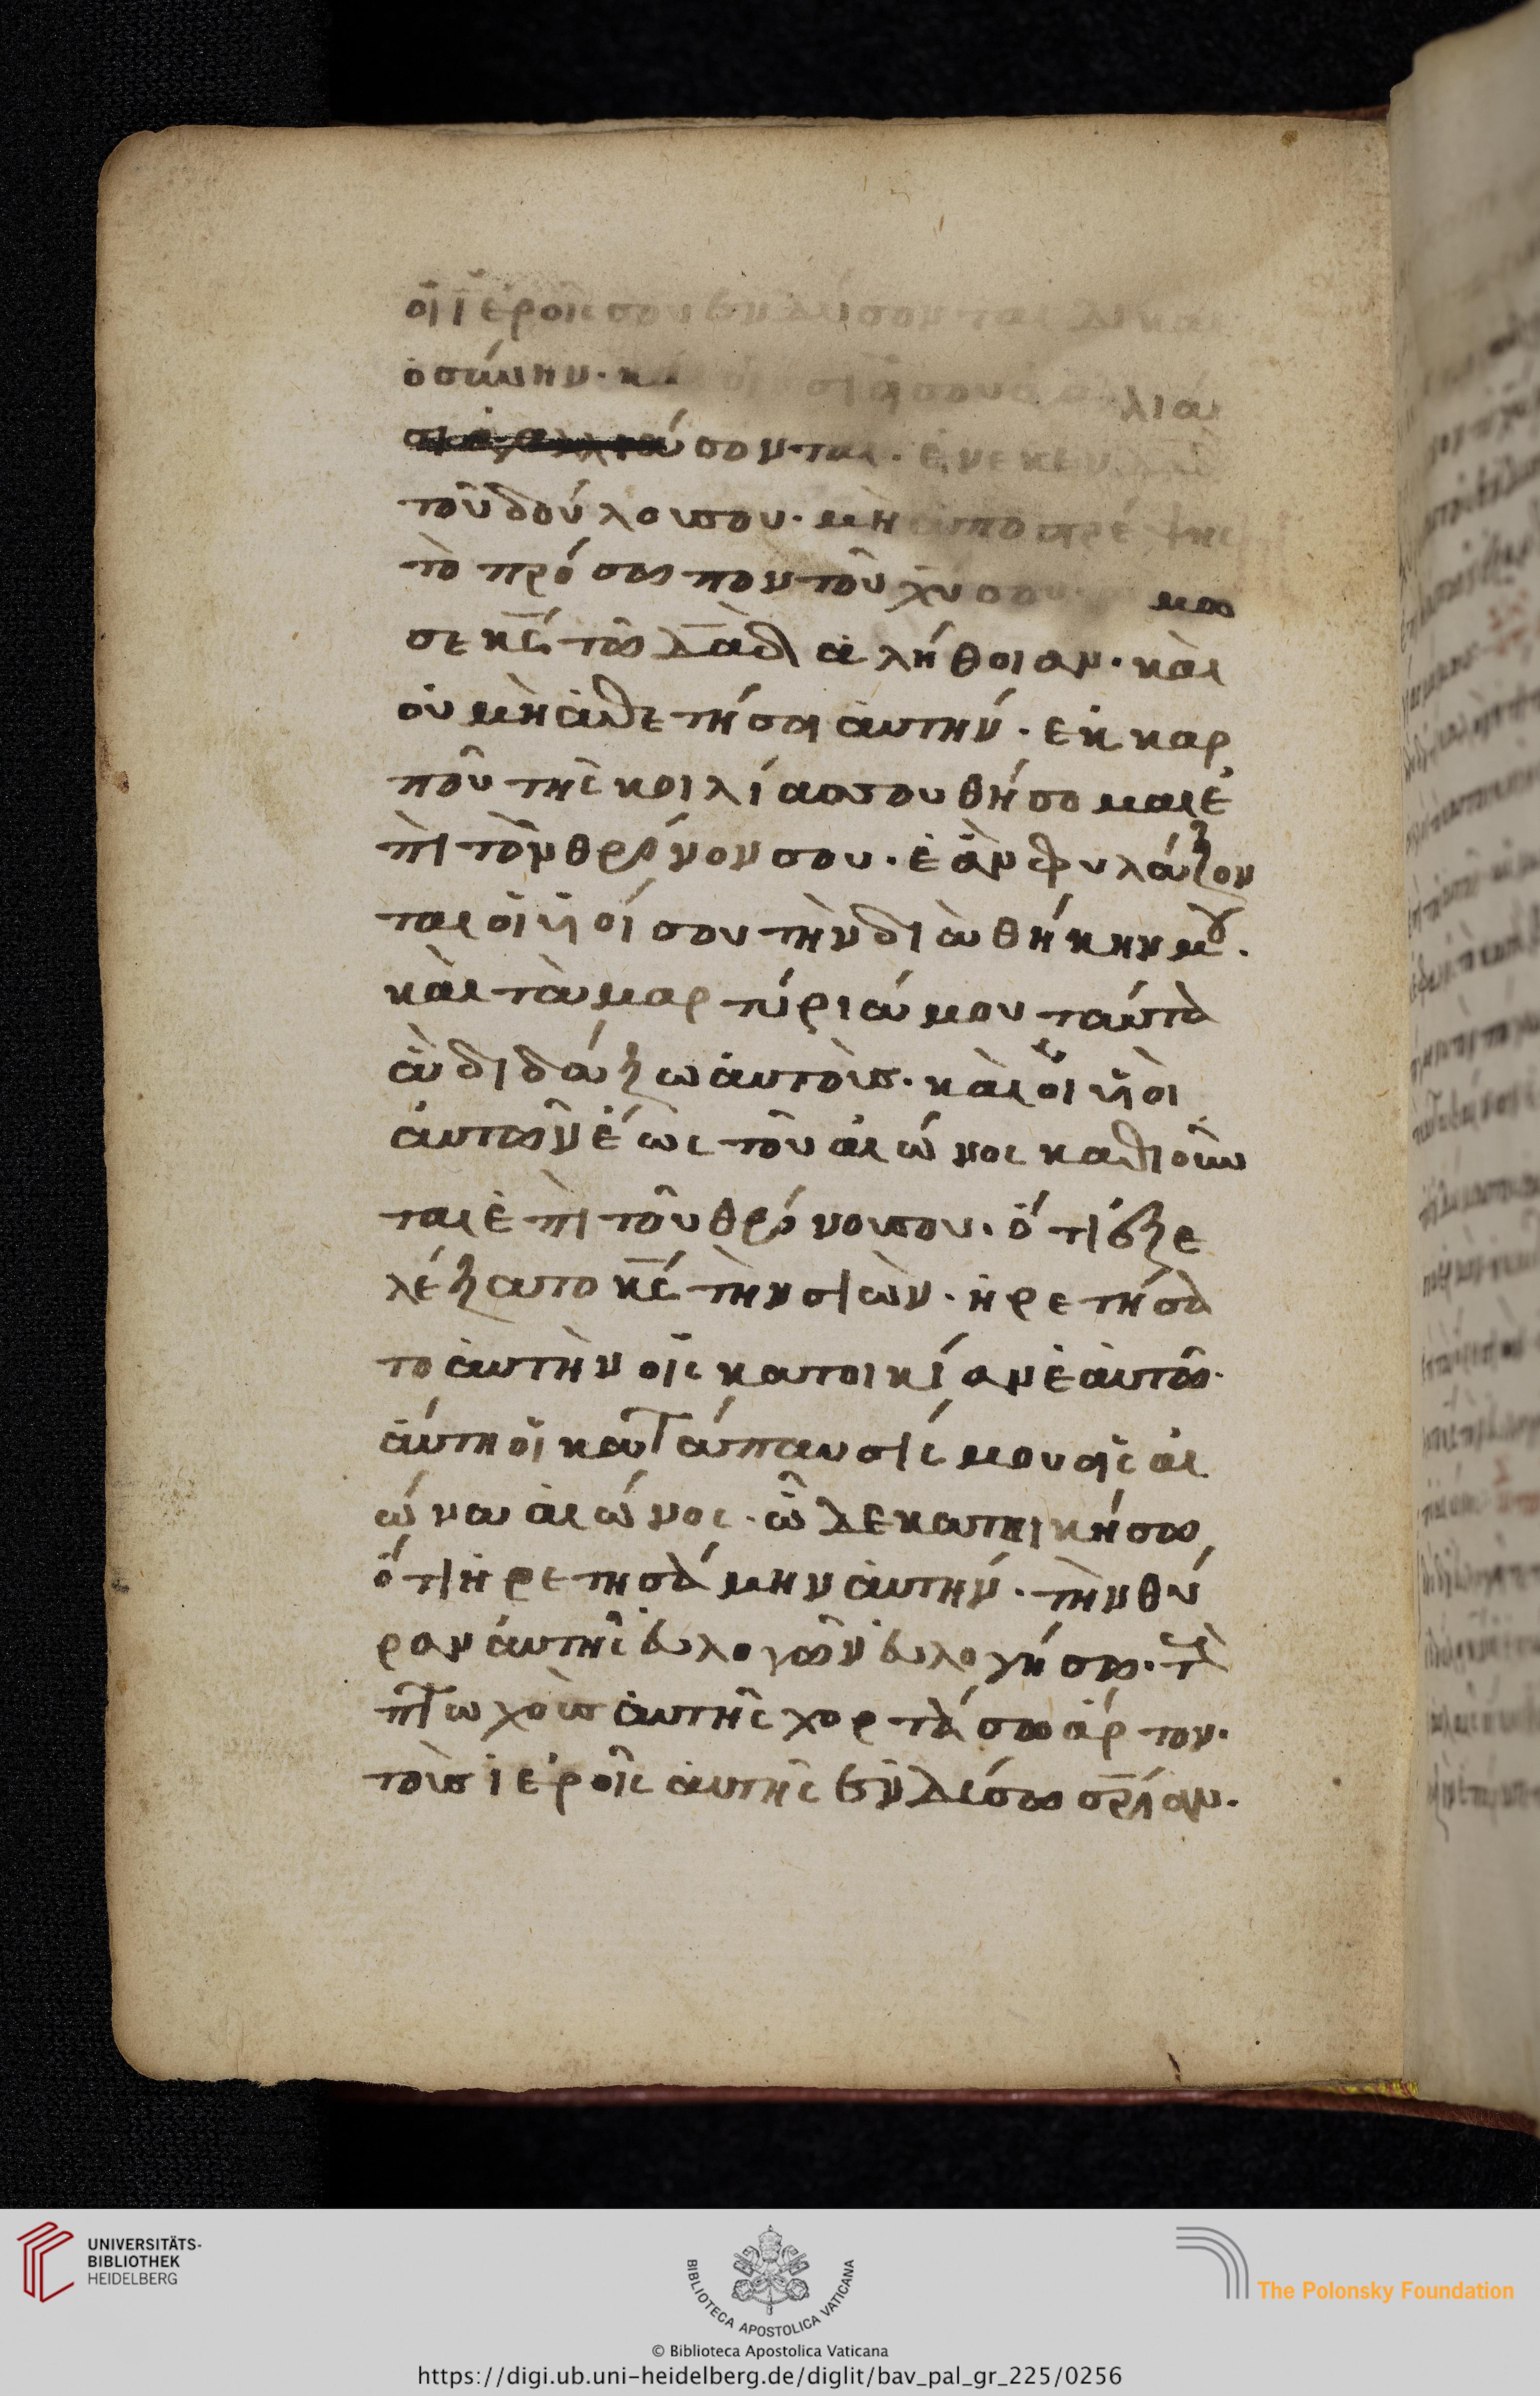 οἱ ἱερεῖς σου ἐνδύσονται δικαι
οσύνην· και οἱ ὅσιοι σου ἀγαλλια
σονται· ἕνεκεν δαδ
τοῦ δούλου σου· μὴ ἀποστρέψης
τὸ πρόσωπον τοῦ χυ σου· ὤμο
σε κς τῶ δαδ ἀλήθειαν· καὶ
οὐ μὴ ἀθετήσει ἀυτήν· ἐκ καρ
ποῦ τῆς κοιλίας σου θήσομαι ἐ
πὶ τὸν θρόνον σου· ἐὰν φυλάξον
ται οἱ ὑοί σου τὴν διαθήκην μου·
καὶ τὰ μαρτύριά μου ταῦτα
ἃ διδάξω ἀυτοὺς· καὶ οἱ ὑοὶ
ἀυτῶν ἕως τοῦ αἰώνος καθιοῦν
ται ἐπὶ τοῦ θρόνου σου· ὅτι ἐξε
λέξατο κς τὴν σιὼν· ἡρετήσα
το ἀυτὴν εἰς κατοικίαν ἑαυτῶ·
ἁύτη ἡ κατάπαυσίς μου εἰς αἰ
ώνα αἰώνος· ὧδε κατοικήσω
ὅτι ἡρετησάμην ἀυτήν· τὴν θύ
ραν ἀυτῆς ἐυλογῶν ἐυλογήσω· τοὺς
πτωχοὺς ἀυτῆς χορτάσω ἄρτον·
τοὺς ἱερεῖς ἀυτῆς ἐνδύσω σρίαν·
UNIVERSITÄTS-
BIBLIOTHEK
HEIDELBERG
BIBLIOTECA APOSTOLICA VATICANA
The Polonsky Foundation
© Biblioteca Apostolica Vaticana
https://digi.ub.uni-heidelberg.de/diglit/bav_pal_gr_225/0256